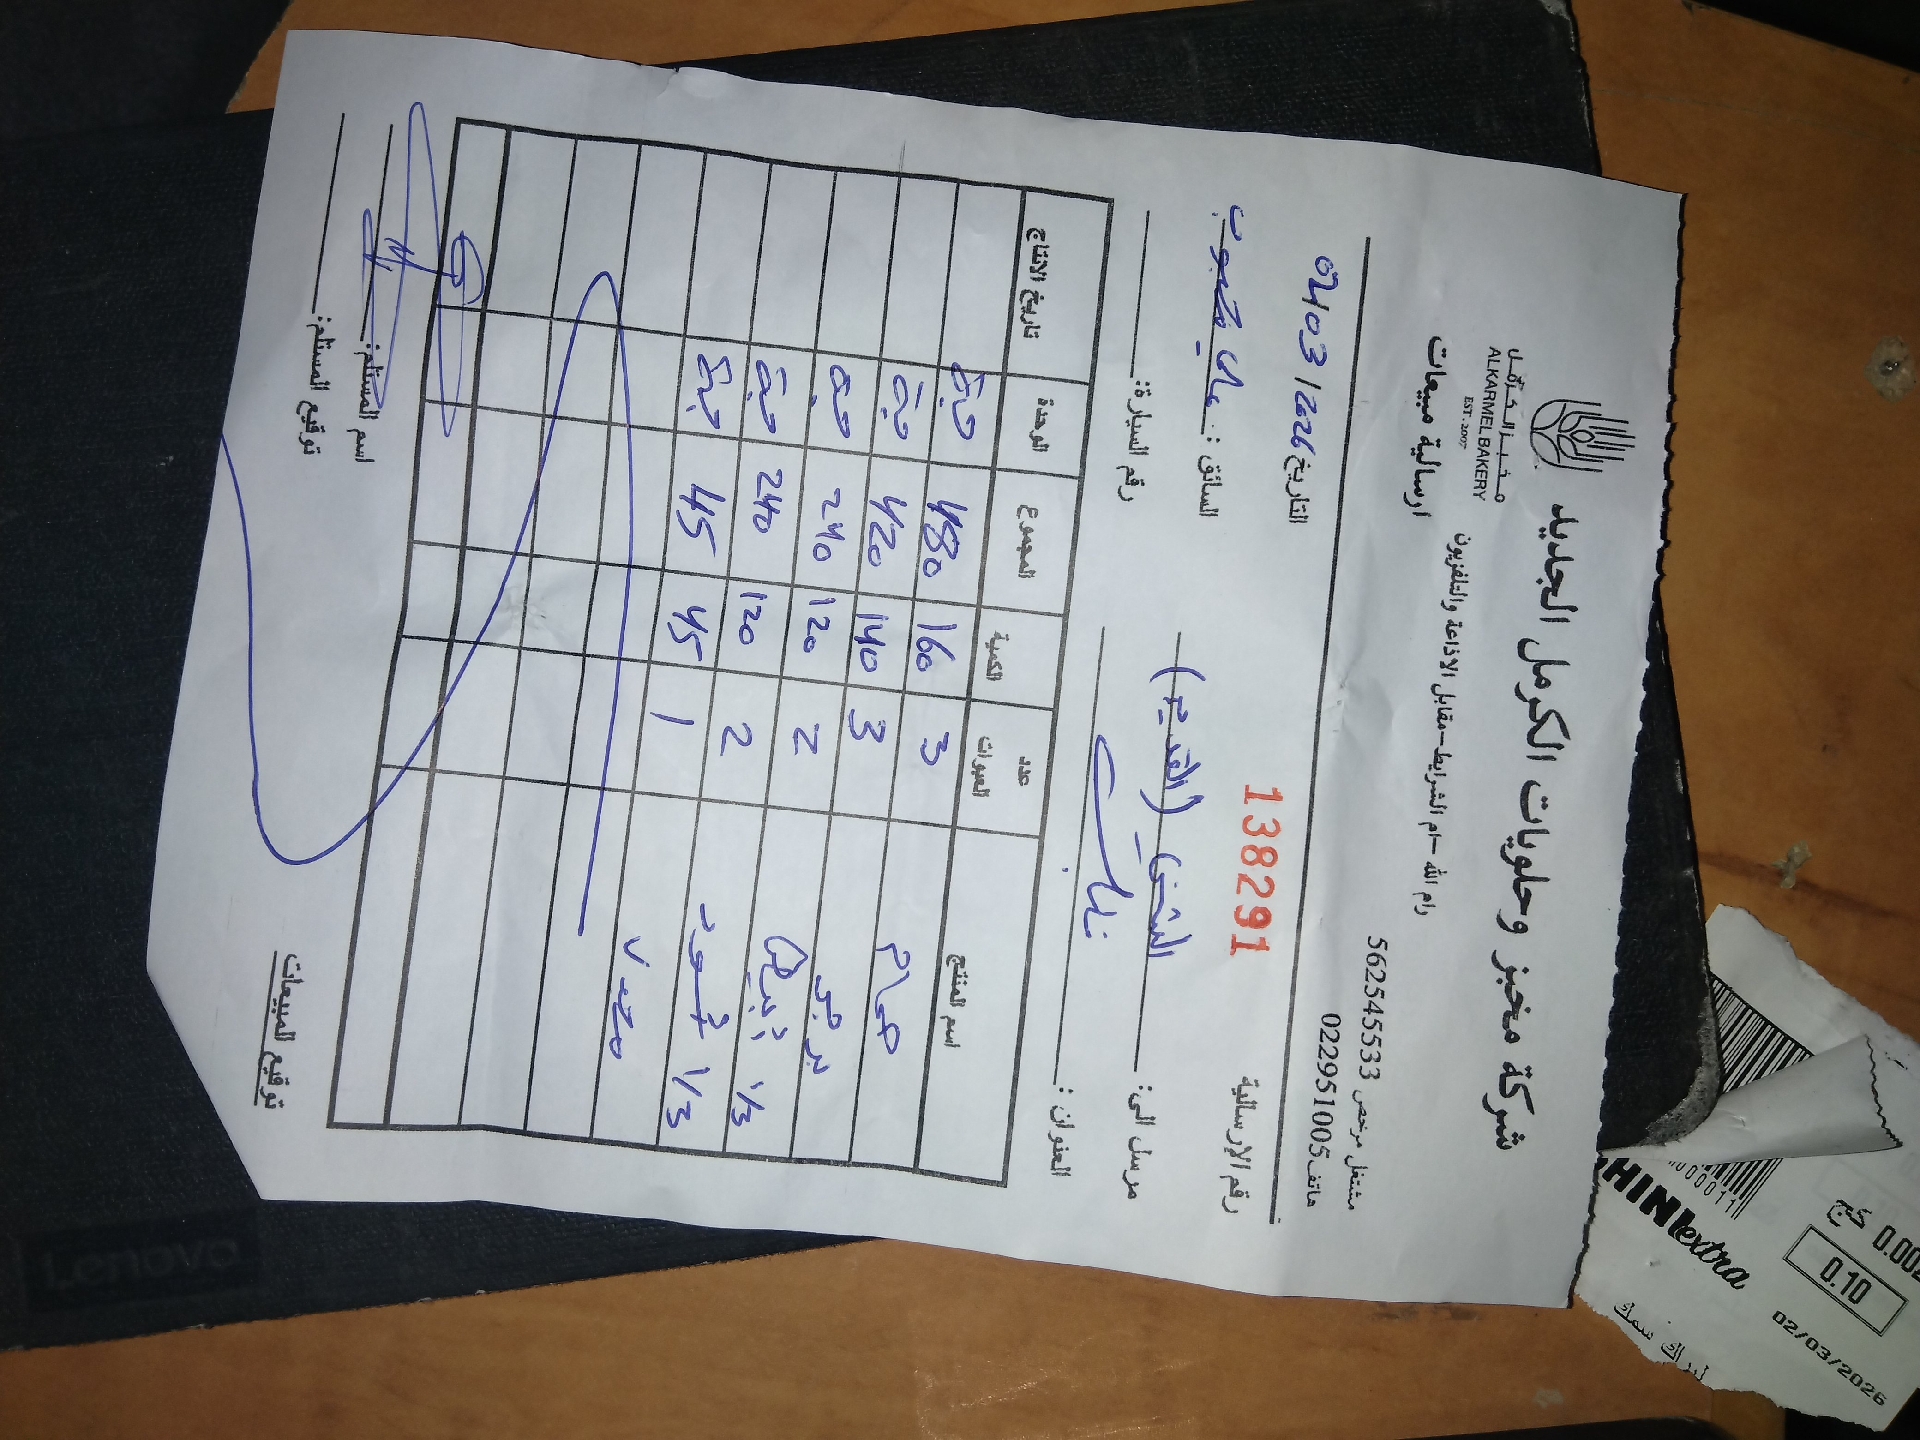 شركة مخبز وحلويات الكرمل الجديد
مخبز الكرمل
ALKARMEL BAKERY
EST. 2007
رام الله -ام الشرايط-مقابل الاذاعة والتلفزيون
ارسالية مبيعات
مشتغل مرخص 562545533
هاتف 022951005
رقم الإرسالية 138291
التاريخ 02/03/2026
مرسل الى: (القديم)
السائق:
العنوان:
رقم السيارة:
اسم المنتج عدد العبوات الكمية المجموع الوحدة تاريخ الانتاج
حمام 3 160 480 حبة
برجر 3 140 420 حبة
1/3 2 120 240 حبة
1/3 2 120 240 حبة
1 45 45 حبة
توقيع المبيعات
اسم المستلم:
توقيع المستلم:
Lenovo
HINextra
كج 0.002
0.10
02/03/2026
سمك